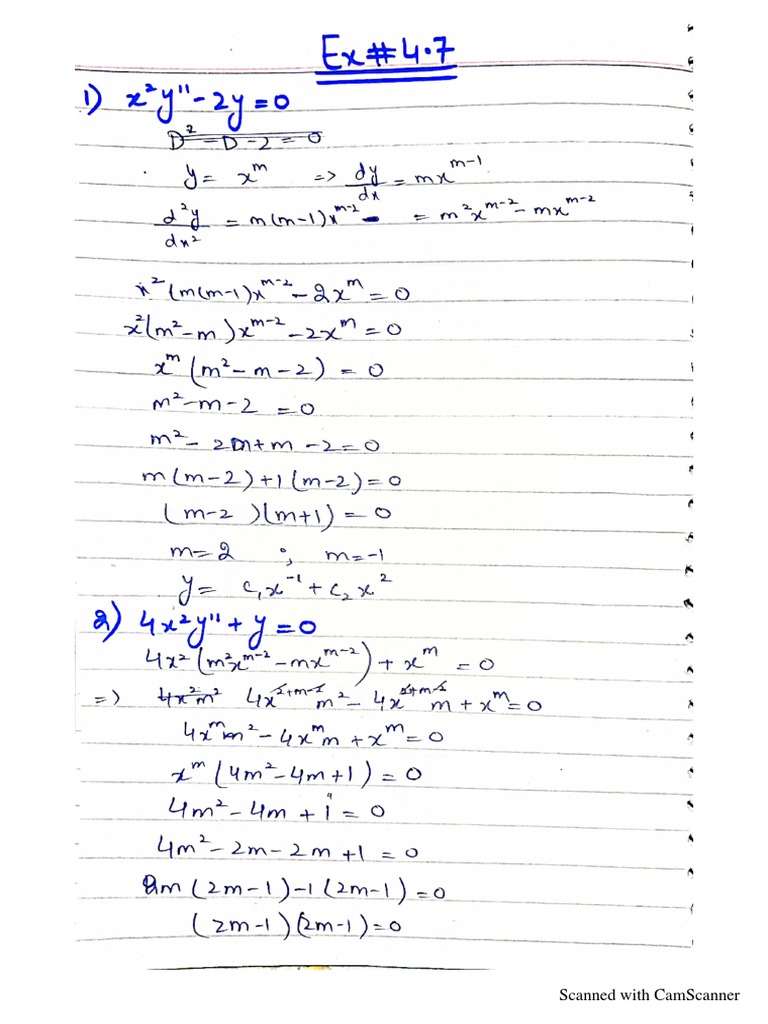 Ex#4.7
1) x²y''-2y=0
D²-D-2=0
y= x^m => dy/dx = mx^(m-1)
d²y/dx² = m(m-1)x^(m-2) = m²x^(m-2) - mx^(m-2)
x²(m(m-1)x^(m-2) - 2x^m = 0
x²(m²-m)x^(m-2) - 2x^m = 0
x^m (m²-m-2) = 0
m²-m-2 = 0
m²-2m+m-2=0
m(m-2)+1(m-2)=0
(m-2)(m+1)=0
m=2 ; m=-1
y= c₁x^(-1) + c₂x²
2) 4x²y''+y=0
4x²(m²x^(m-2) - mx^(m-2)) + x^m = 0
=> 4x²m² 4x^(2+m-2) m² - 4x^(2+m-2) m + x^m = 0
4x^m m² - 4x^m m + x^m = 0
x^m (4m²-4m+1) = 0
4m²-4m+1=0
4m²-2m-2m+1=0
2m(2m-1)-1(2m-1)=0
(2m-1)(2m-1)=0
Scanned with CamScanner